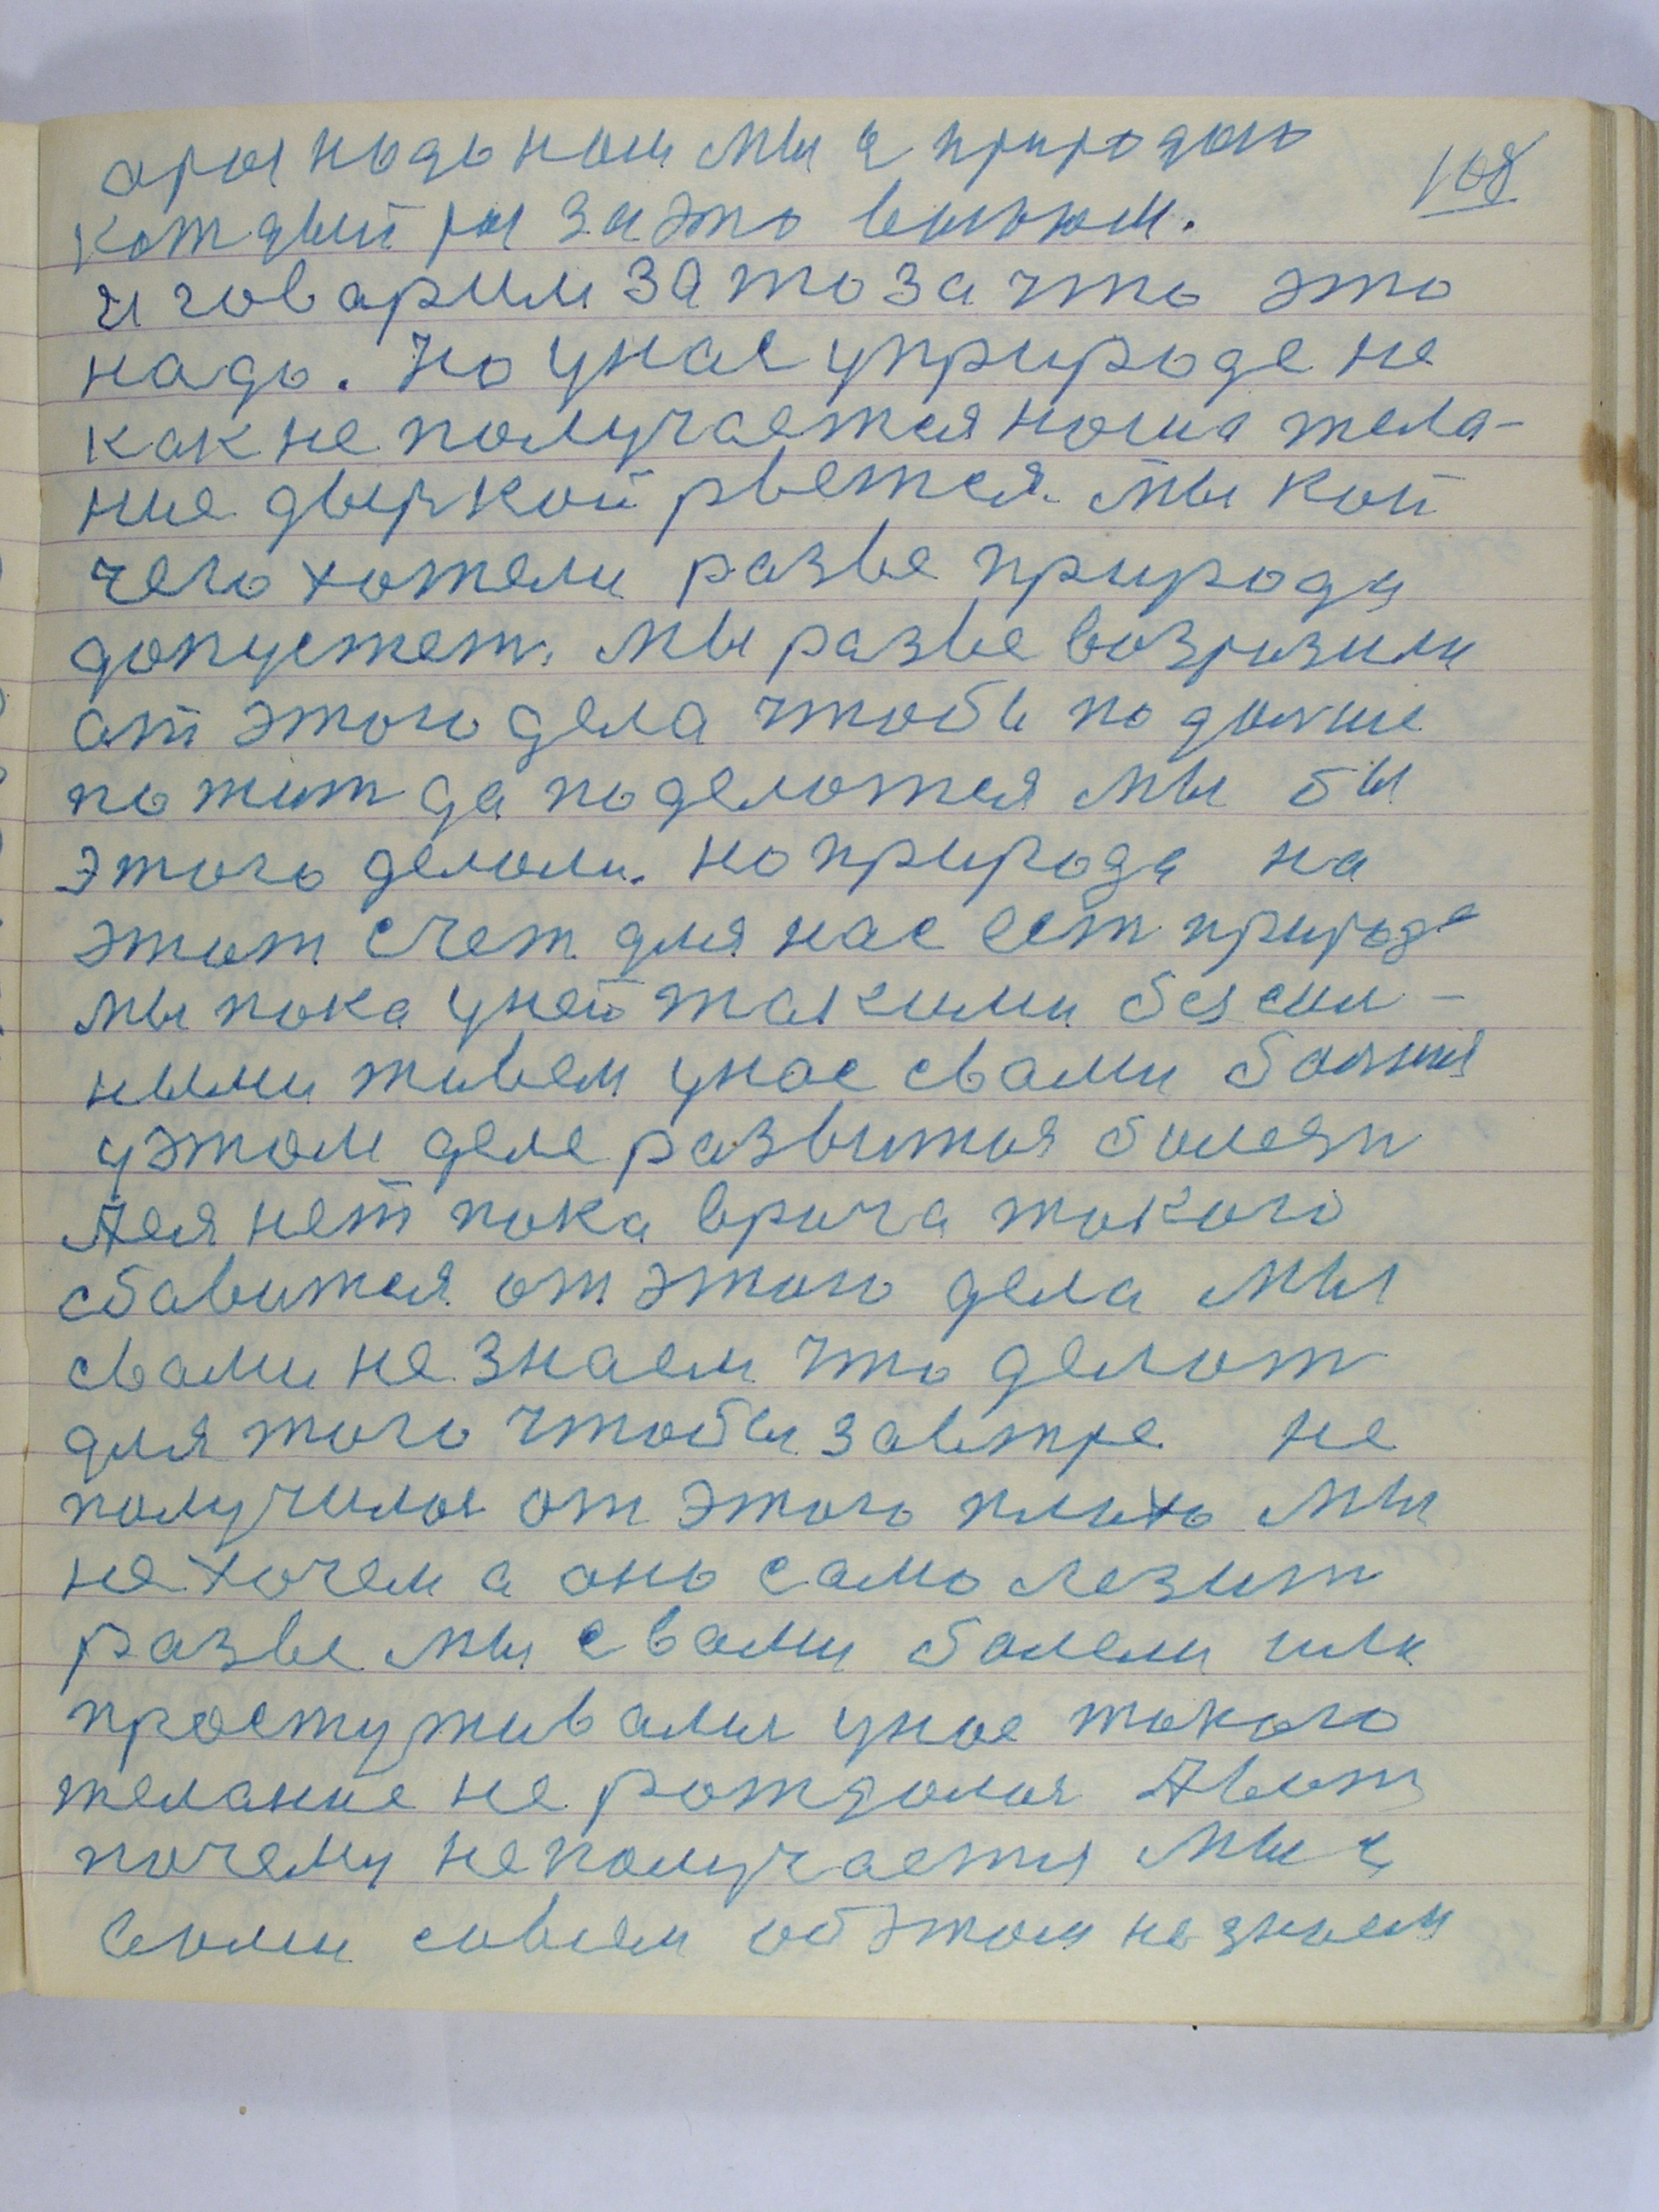 108
ары надо нам мы с природою
каждый раз за это воюем.
и говарим за то за что это
надо. но унас уприроде не
как не получается ноша жела-
ние дыркой рвется. мы кой
чего хотели разве природа
допустет. мы разве возразили
от этого дела чтобы по долше
по жит да поделотся мы бы
этого делоли. но природа на
этот счет для нас ест природа
мы пока уней такими безсил-
ными живем унас свами
уэтом деле развития болезн
Аея нет пока врача токого
сбавится от этого дела мы
свами не знаем что делот
для того чтобы завтре не
получилос от этого плихо мы
не хочем а оно само лезит
разве мы с вами болели или
простуживалис унос токого
желание не рождолос Авот
почему неполучается мы с
воми совсем об этом не знаем